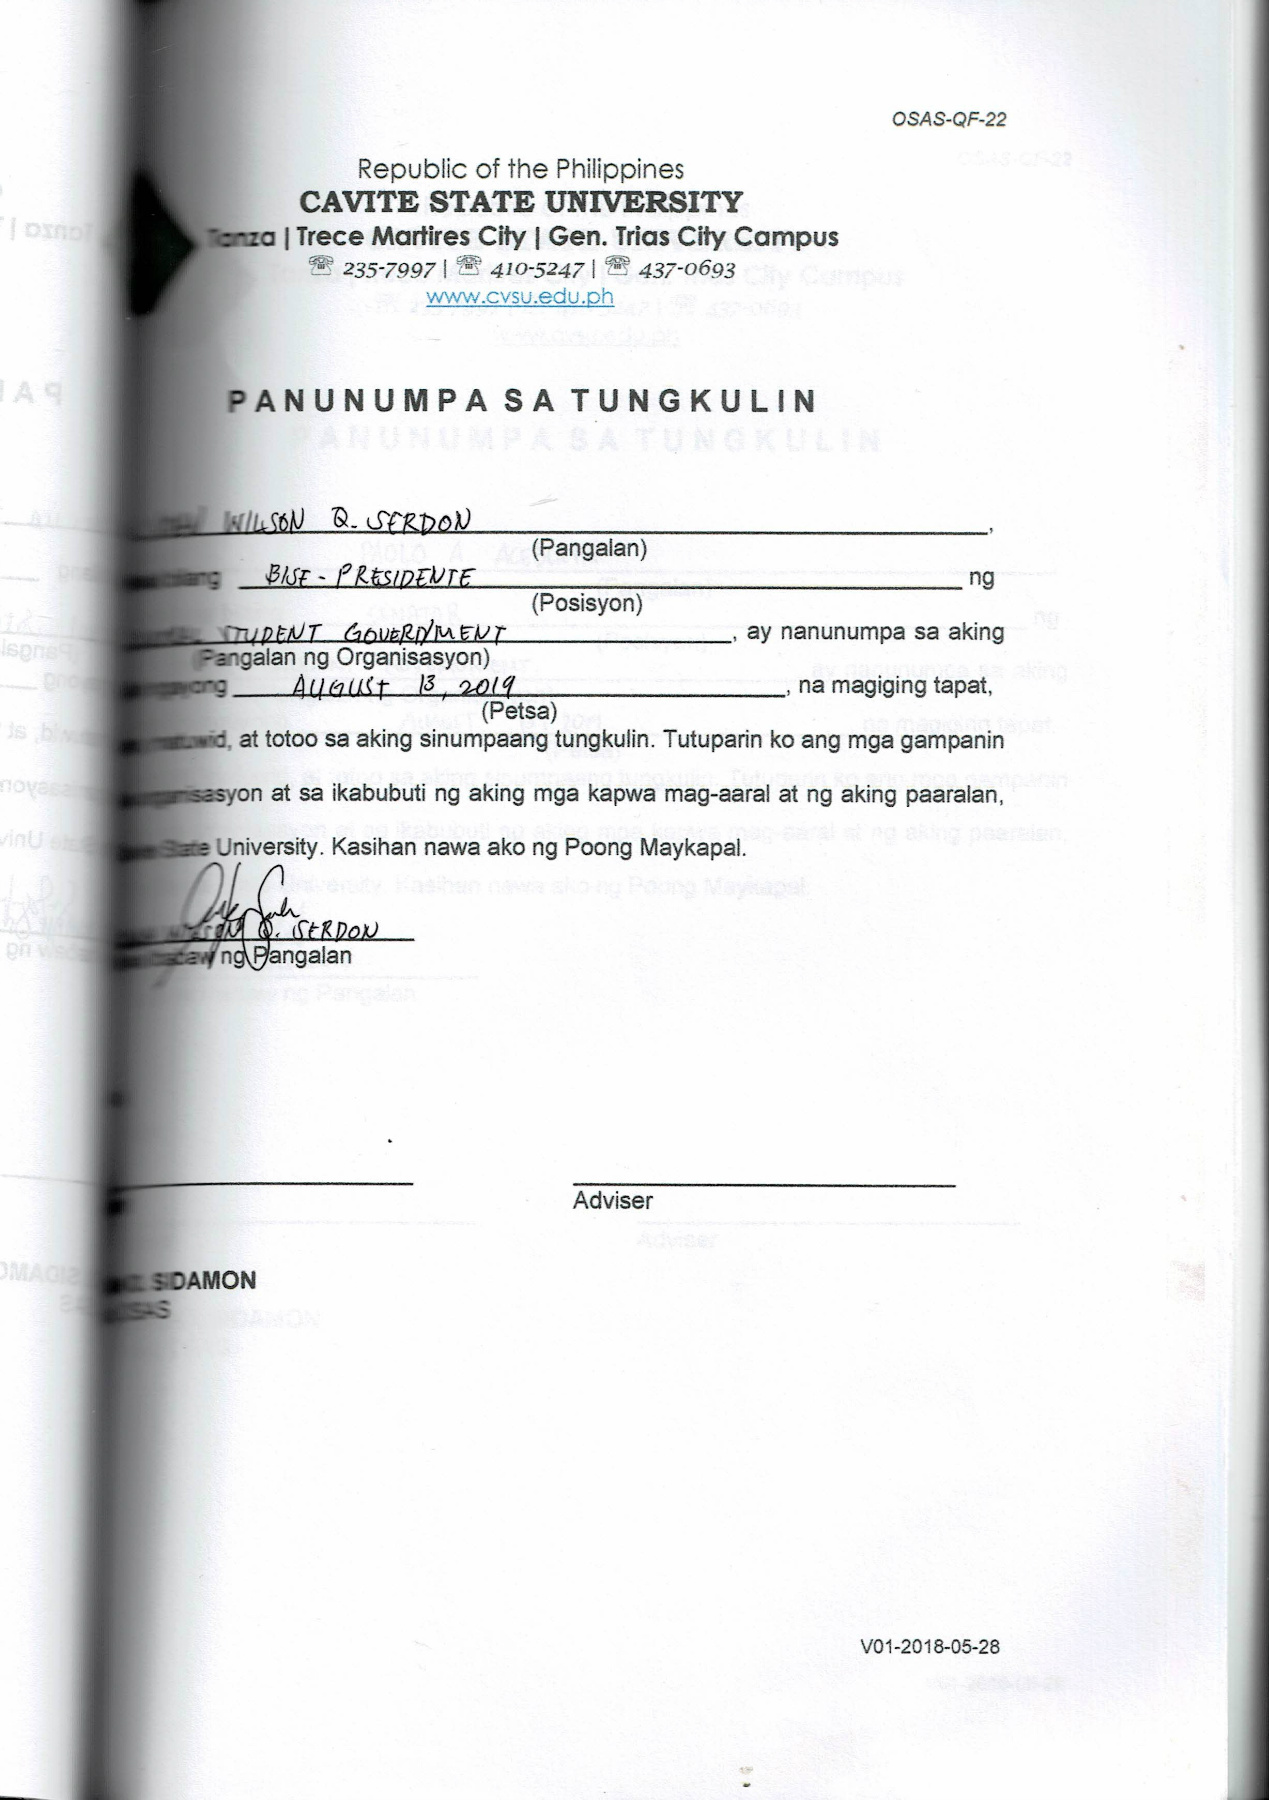 OSAS-QF-22
Republic of the Philippines
CAVITE STATE UNIVERSITY
Tanza | Trece Martires City | Gen. Trias City Campus
☏ 235-7997 | ☏ 410-5247 | ☏ 437-0693
www.cvsu.edu.ph
PANUNUMPA SA TUNGKULIN
WILSON Q. SERDON,
(Pangalan)
BISE-PRESIDENTE ng
(Posisyon)
STUDENT GOVERNMENT, ay nanunumpa sa aking
(Pangalan ng Organisasyon)
AUGUST 13, 2019, na magiging tapat,
(Petsa)
at totoo sa aking sinumpaang tungkulin. Tutuparin ko ang mga gampanin
organisasyon at sa ikabubuti ng aking mga kapwa mag-aaral at ng aking paaralan,
State University. Kasihan nawa ako ng Poong Maykapal.
Q. SERDON
ng Pangalan
Adviser
SIDAMON
OSAS
V01-2018-05-28